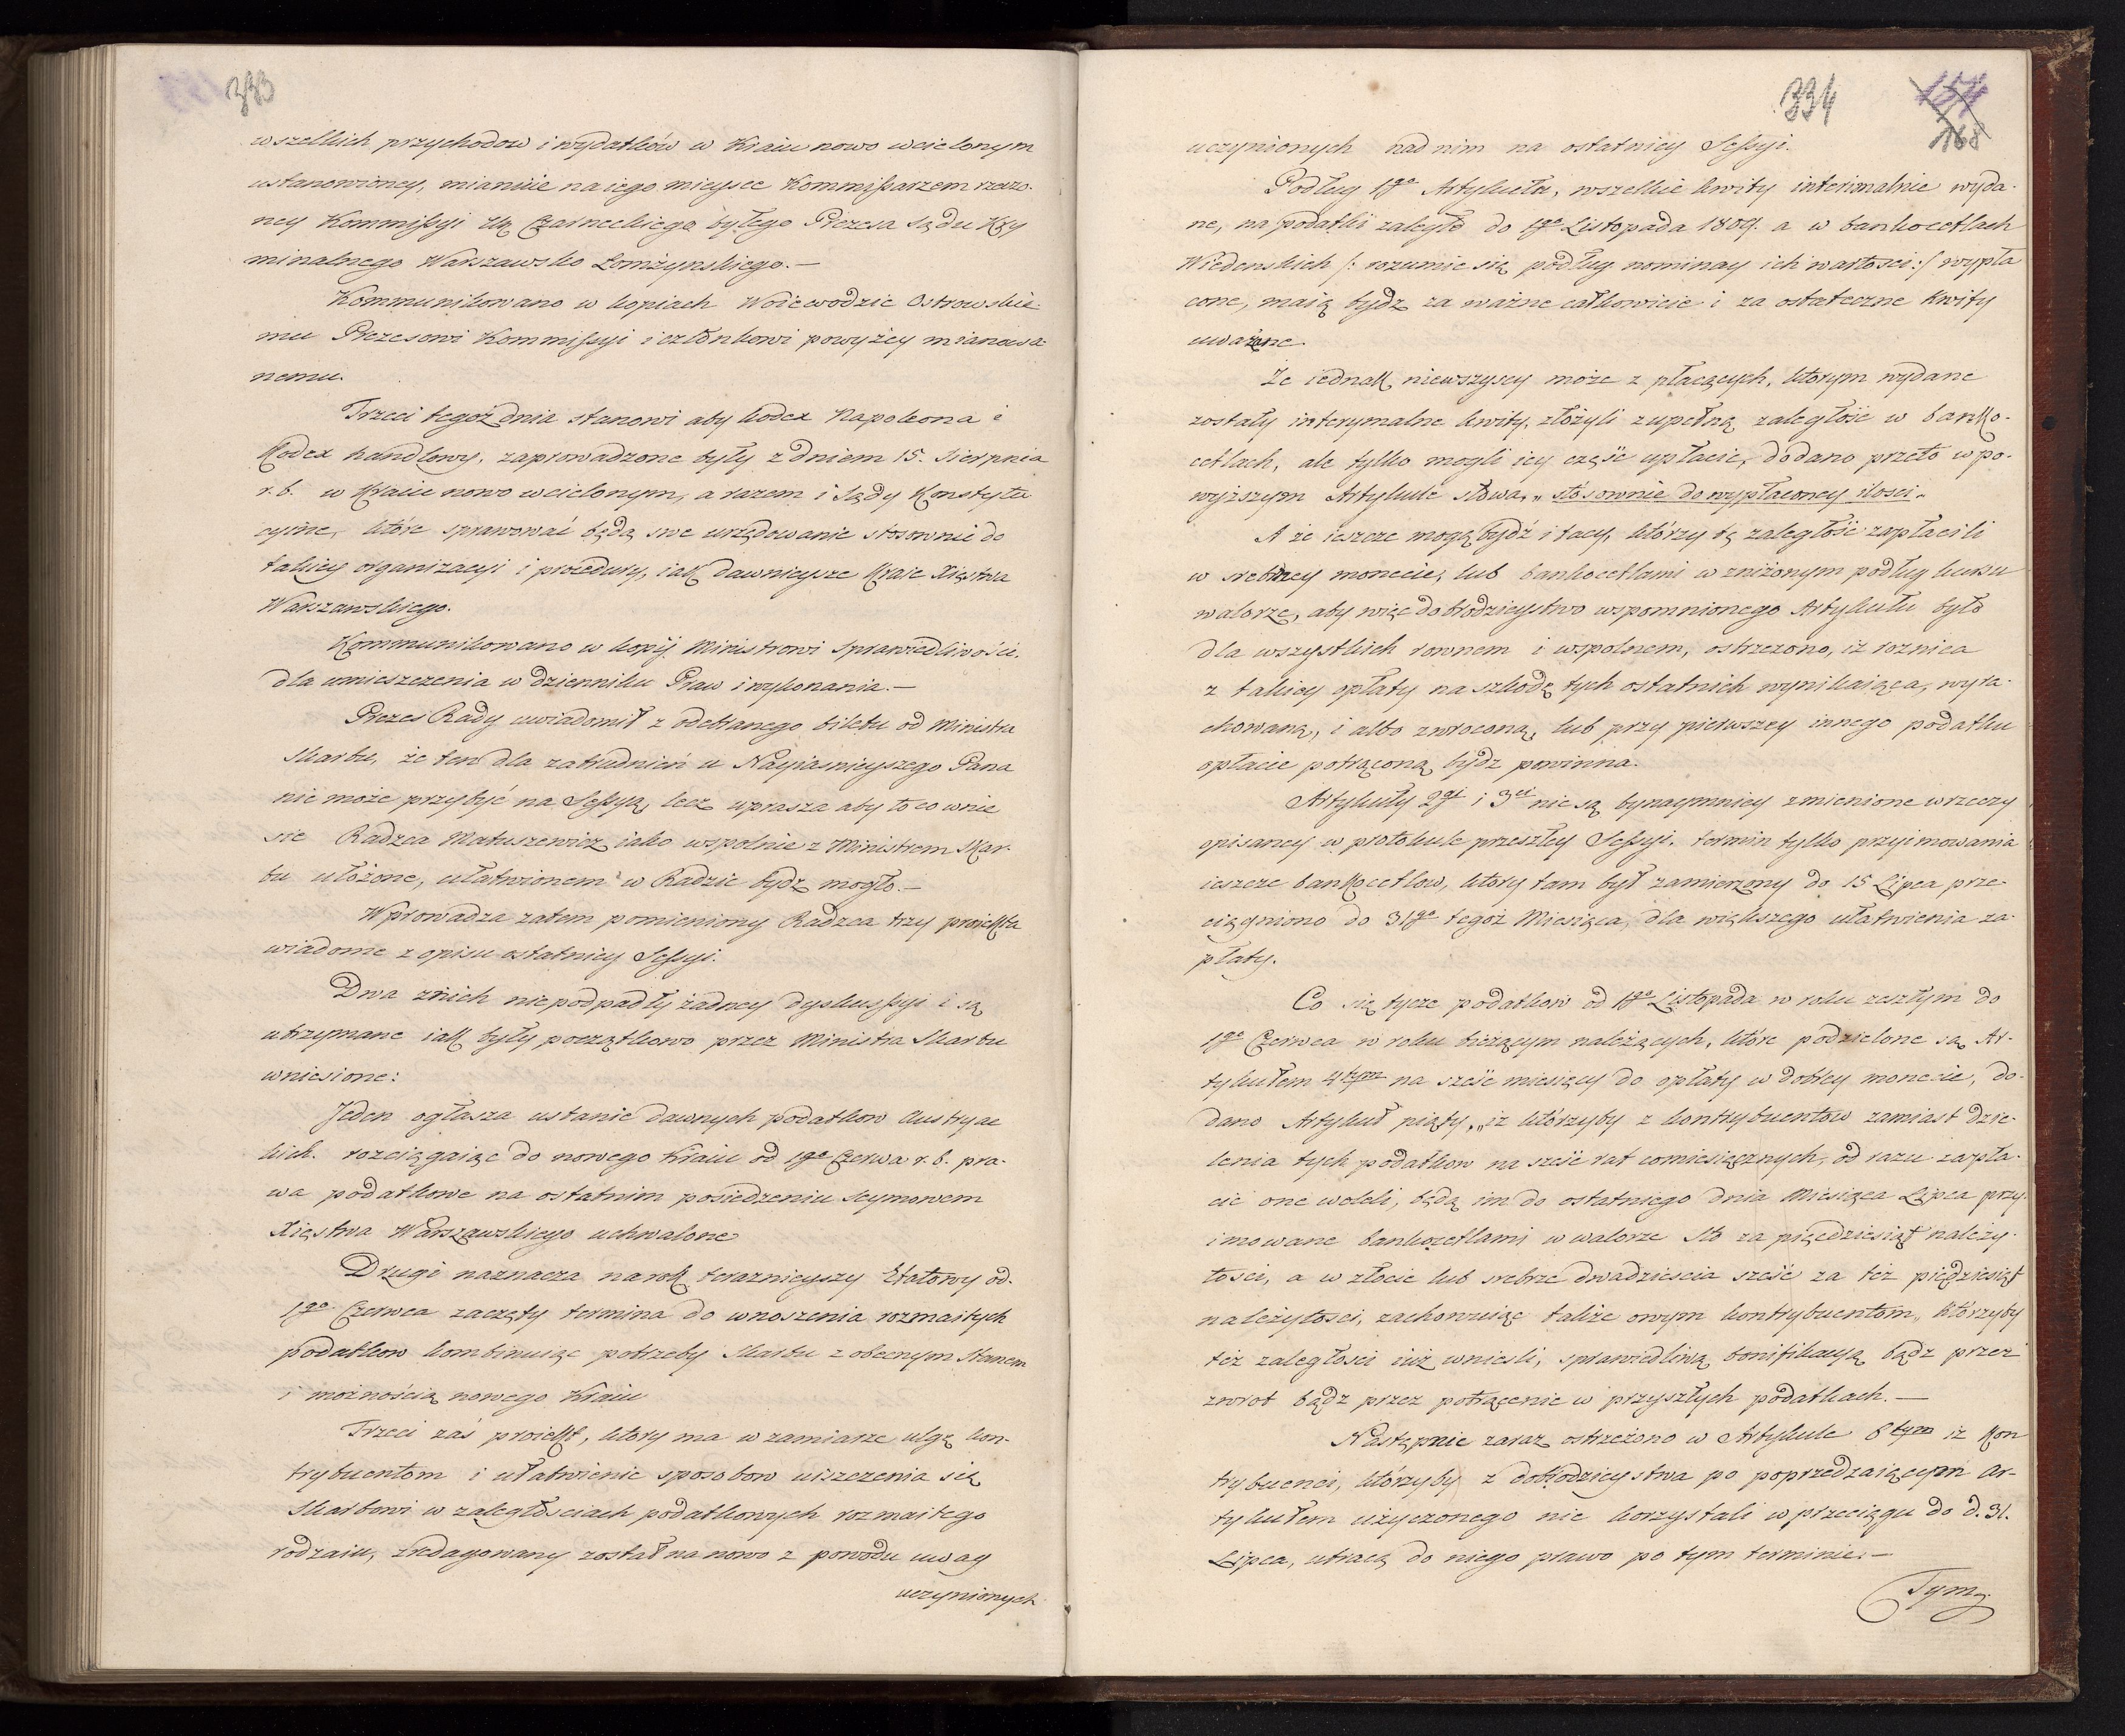 333
wszelkich przychodow i wydatków w Kraiu nowo wcielonym
ustanowioney, mianuie na iego mieysce Kommissarzem rzeczo-
ney Kommissyi Ur. Czarneckiego byłego Prezesa Sądu Kry
minalnego Warszawsko Łomżynskiego.—
Kommunikowano w kopiach Woiewodzie Ostrowskie-
mu Prezesowi Kommissyi i członkowi powyżey mianowa-
nemu.
Trzeci tegoż dnia stanowi aby kodex Napoleona i
Kodex handlowy, zaprowadzone były z dniem 15. Sierpnia
r. b. w Kraiu nowo wcielonym, a razem i Sądy Konstytu
cyine, które sprawować będą swe urzędowanie stosownie do
takiey organizacyi i procedury, iak dawnieysze Kraie Xięstwa
Warszawskiego.
Kommunikowano w kopij Ministrowi Sprawiedliwości.
dla umieszczenia w dzienniku Praw i wykonania.—
Prezes Rady uwiadomił z odebranego biletu od Ministra
Skarbu, że ten dla zatrudnień u Nayiasnieyszego Pana
nie może przybyć na Sessyą, lecz uprasza aby to co wnie
sie Radzca Matuszewicz iako wspolnie z Ministrem Skar-
bu ułożone, ułatwionem w Radzie bydz mogło.—
Wprowadza zatem pomieniony Radzca trzy proiekta
wiadome z opisu ostatniey Sessyi.
Dwa z nich nie podpadły żadney dyskussyi i są
utrzymane iak były początkowo przez Ministra Skarbu
wniesione:
Jeden ogłasza ustanie dawnych podatkow Austryac
kich. rozciągaiąc do nowego Kraiu od 1go Czerwa r. b. pra-
wa podatkowe na ostatnim posiedzeniu Seymowem
Xięstwa Warszawskiego uchwalone
Drugi naznacza na rok teraznieyszy Etatowy od
1go Czerwca zaczęty termina do wnoszenia rozmaitych
podatkow kombinuiąc potrzeby Skarbu z obecnym Stanem
i możnością nowego Kraiu
Trzeci zaś proiekt, ktory ma w zamiarze ulgę kon-
trybuentom i ułatwienie sposobow uiszczenia się
Skarbowi w zaległosciach podatkowych rozmaitego
rodzaiu, zredagowany został na nowo z powodu uwag
uczynionych
334
168
uczynionych nad nim na ostatniey Sessyi.
Podług 1go Artykułu, wszelkie kwity interimalnie wyda-
ne, na podatki zaległe do 1go Listopada 1809. a w bankocetlach
Wiedenskich /: rozumie się podług nominay ich wartosci :/ wypła
cone, maią bydz za ważne całkowicie i za ostateczne Kwity
uważane.
Że iednak niewszyscy może z płacących, ktorym wydane
zostały interymalne kwity, złożyli zupełną zaległość w banko-
cetlach, ale tylko mogli iey część upłacic, dodano przeto w po-
wyższym Artykule słowa, „ stosownie do wypłaconey ilosci „
A że ieszcze mogą bydź i tacy, którzy tę zaległość zapłacili
w srebrney monecie, lub bankocetlami w zniżonym podług kursu
walorze, aby więc dobrodzieystwo wspomnionego Artykułu było
dla wszystkich rownem i wspolnem, ostrzezono, iz roznica
z takiey opłaty na szkodę tych ostatnich wynikaiąca, wyra-
chowaną, i albo zwroconą, lub przy pierwszey innego podatku
opłacie potrąconą bydz powinna.
Artykuły 2gi i 3ci nie są bynaymniey zmienione w rzeczy
opisaney w protokule przeszłey Sessyi. termin tylko przyimowania
ieszcze bankocetlow, ktory tam był zamierzony do 15 Lipca prze
ciągniono do 31go tegoż Miesiąca, dla większego ułatwienia za-
płaty.
Co się tycze podatkow od 1go Listopada w roku zeszłym do
1go Czerwca w roku bieżącym należących, które podzielone są Ar-
tykułem 4tym na sześc miesięcy do opłaty w dobrey monecie, do-
dano Artykuł piąty, „iz którzyby z kontrybuentow zamiast dzie-
lenia tych podatkow na sześć rat comiesięcznych, od razu zapła-
cic one woleli, będą im do ostatniego dnia Miesiąca Lipca przy-
imowane bankocetlami w walorze Sto za pięcdziesiąt należy-
tosci, a w złocie lub srebrze dwadziescia sześć za też pięćdziesiąt
należytosci, zachowuiąc także owym kontrybuentom, którzyby
też zaległosci iuż wniesli, sprawiedliwą bonifikacyą bądz przez
zwrot bądz przez potrącenie w przyszłych podatkach.—
Następnie zaraz ostrzeżono w Artykule 6tym iz Kon
trybuenci, którzyby z dobrodzieystwa po poprzedzaiącym Ar-
tykułem użyczonego nie korzystali w przeciągu do d. 31.
Lipca, utracą do niego prawo po tym terminie.—
Tym